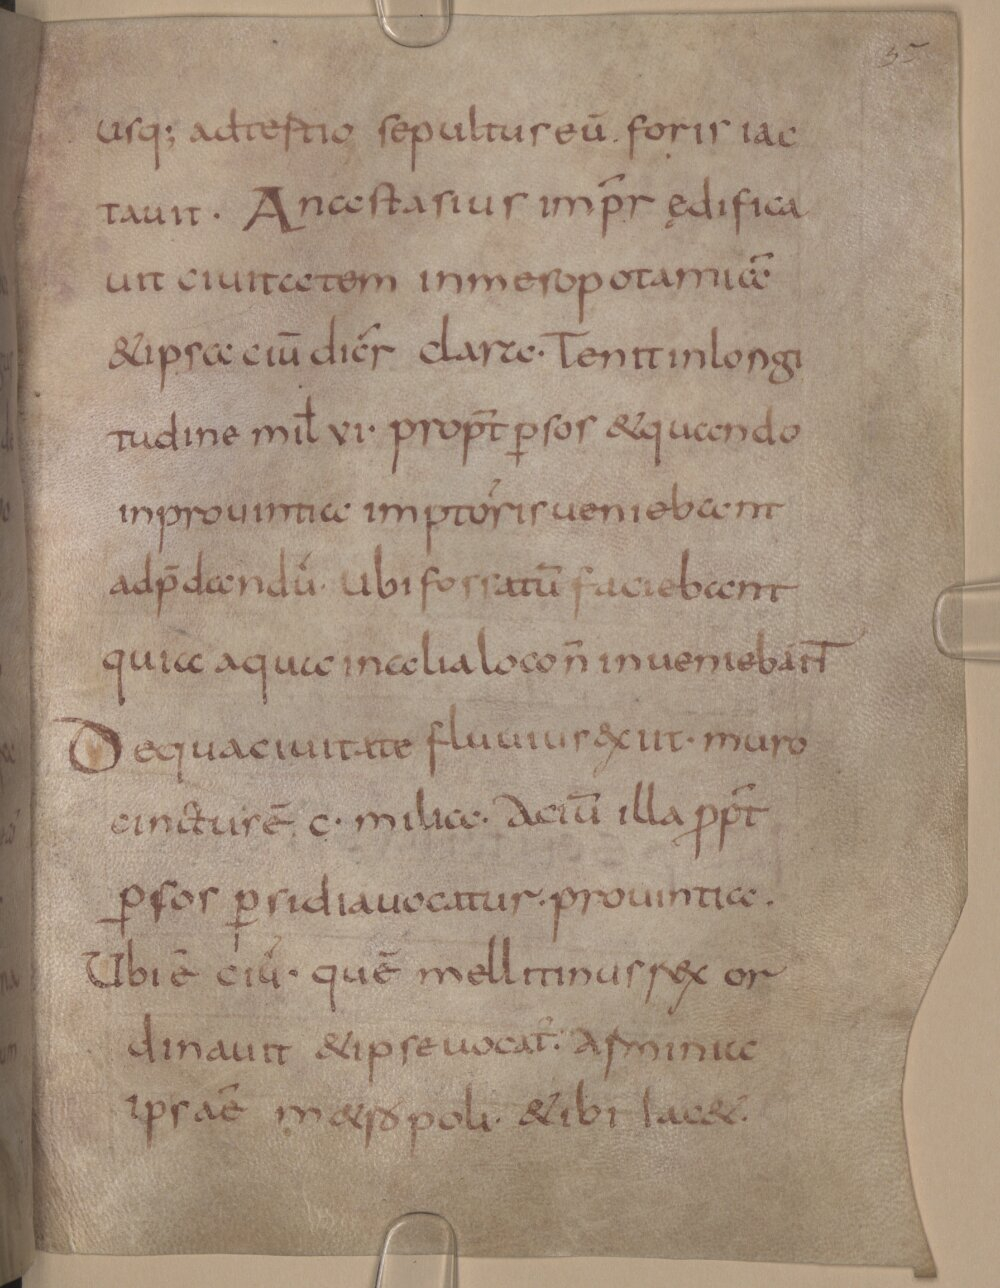 35
usq; adtestio sepulturęū. foris iac
tauit. Anastasius imp̄r ędifica
uit ciuitatem inmesopotamiā
&ipsa ciū dic̄r clarzc. Tenit inlongi
tudine mil̄ vi. prop̄t ꝑsos &quando
inprouintia imptōris ueniebant
adp̄dandū. Ubi fossatū faciebant
quia aqua inalia loco n̄ inueniebant̄
Dequaciuitate fluuius exiit. muro
cinctusē c. milia. Aciū illa ꝓp̄t
ꝑsos ꝑsidia uocatur. prouintia.
Ubi ē ciū. quē mellitinus rex or
dinauit &ipse uocat̄. Asminia
ipsaē m&ropoli. &ibi iac&.